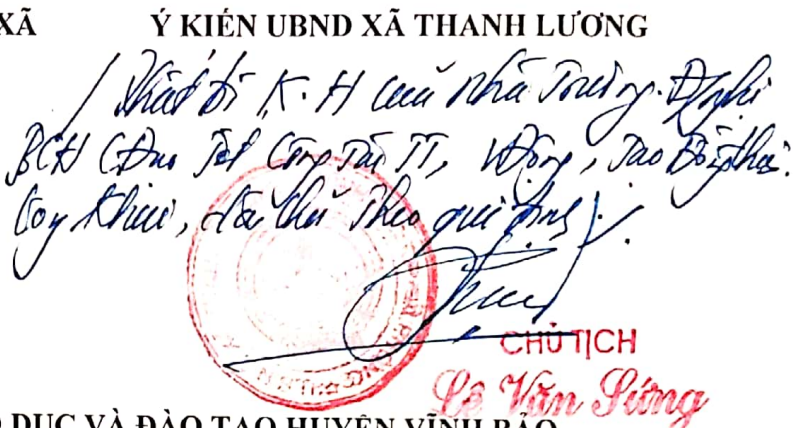 XÃ Ý KIẾN UBND XÃ THANH LƯƠNG
K.H của nhà trường. Đ/nghị
BCH CĐ tốt công tác TT, vđộng, tạo đồng
công khai, dân chủ theo qui định./.
CHỦ TỊCH
Lê Văn Sứng
DỤC VÀ ĐÀO TẠO HUYỆN VĨNH BẢO